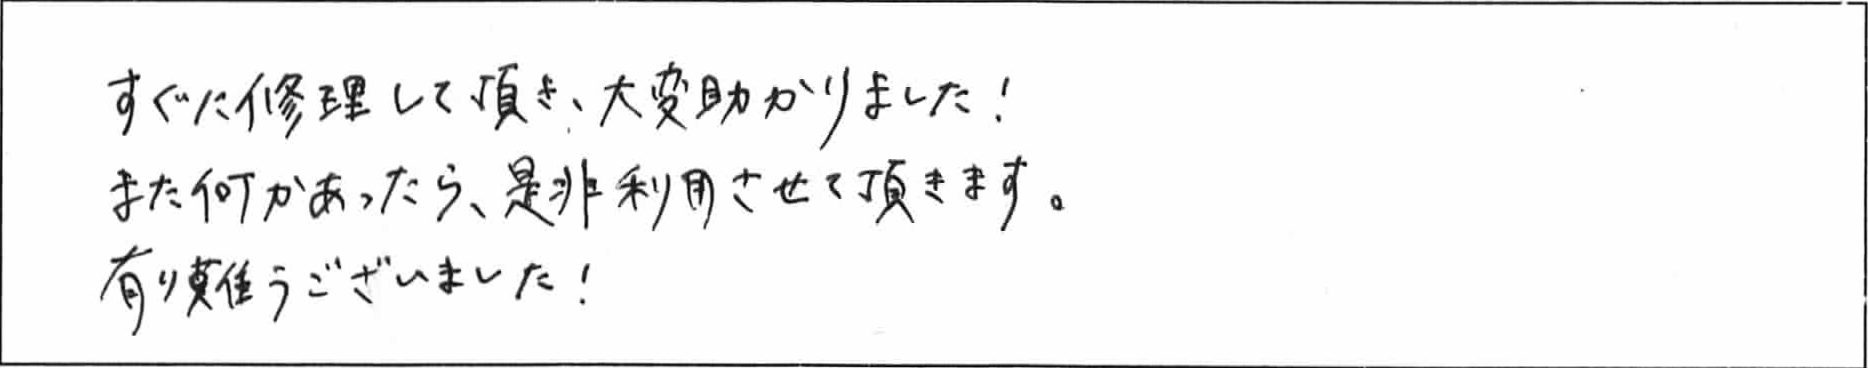 すぐに修理して頂き、大変助かりました！
また何かあったら、是非利用させて頂きます。
有り難うございました！